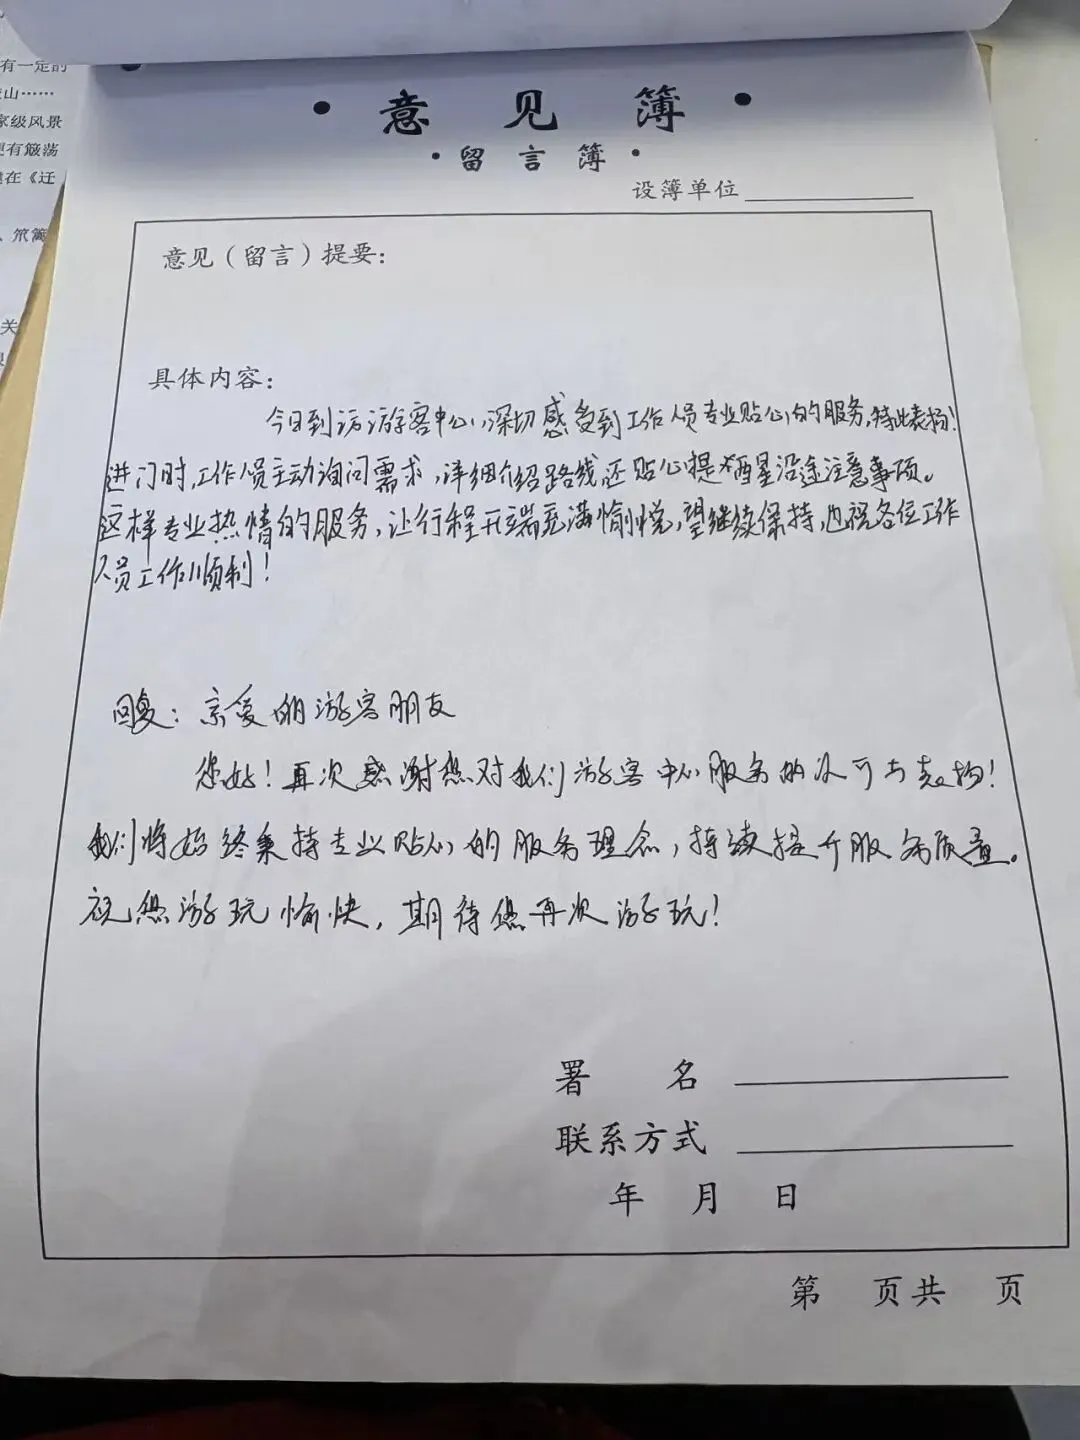 有一定的
山……
家级风景
更有簸荡
在《迁
、笊篱
关
• 意见簿 •
• 留言簿 •
设簿单位
意见（留言）提要：
具体内容：
今日到访游客中心，深切感受到工作人员专业贴心的服务，特此表扬！
进门时，工作人员主动询问需求，详细介绍路线还贴心提醒沿途注意事项。
这样专业热情的服务，让行程开端充满愉悦，望继续保持，也祝各位工作
人员工作顺利！
回复：亲爱的游客朋友
您好！再次感谢您对我们游客中心服务的认可与表扬！
我们将始终秉持专业贴心的服务理念，持续提升服务质量。
祝您游玩愉快，期待您再次游玩！
署 名
联系方式
年 月 日
第 页共 页